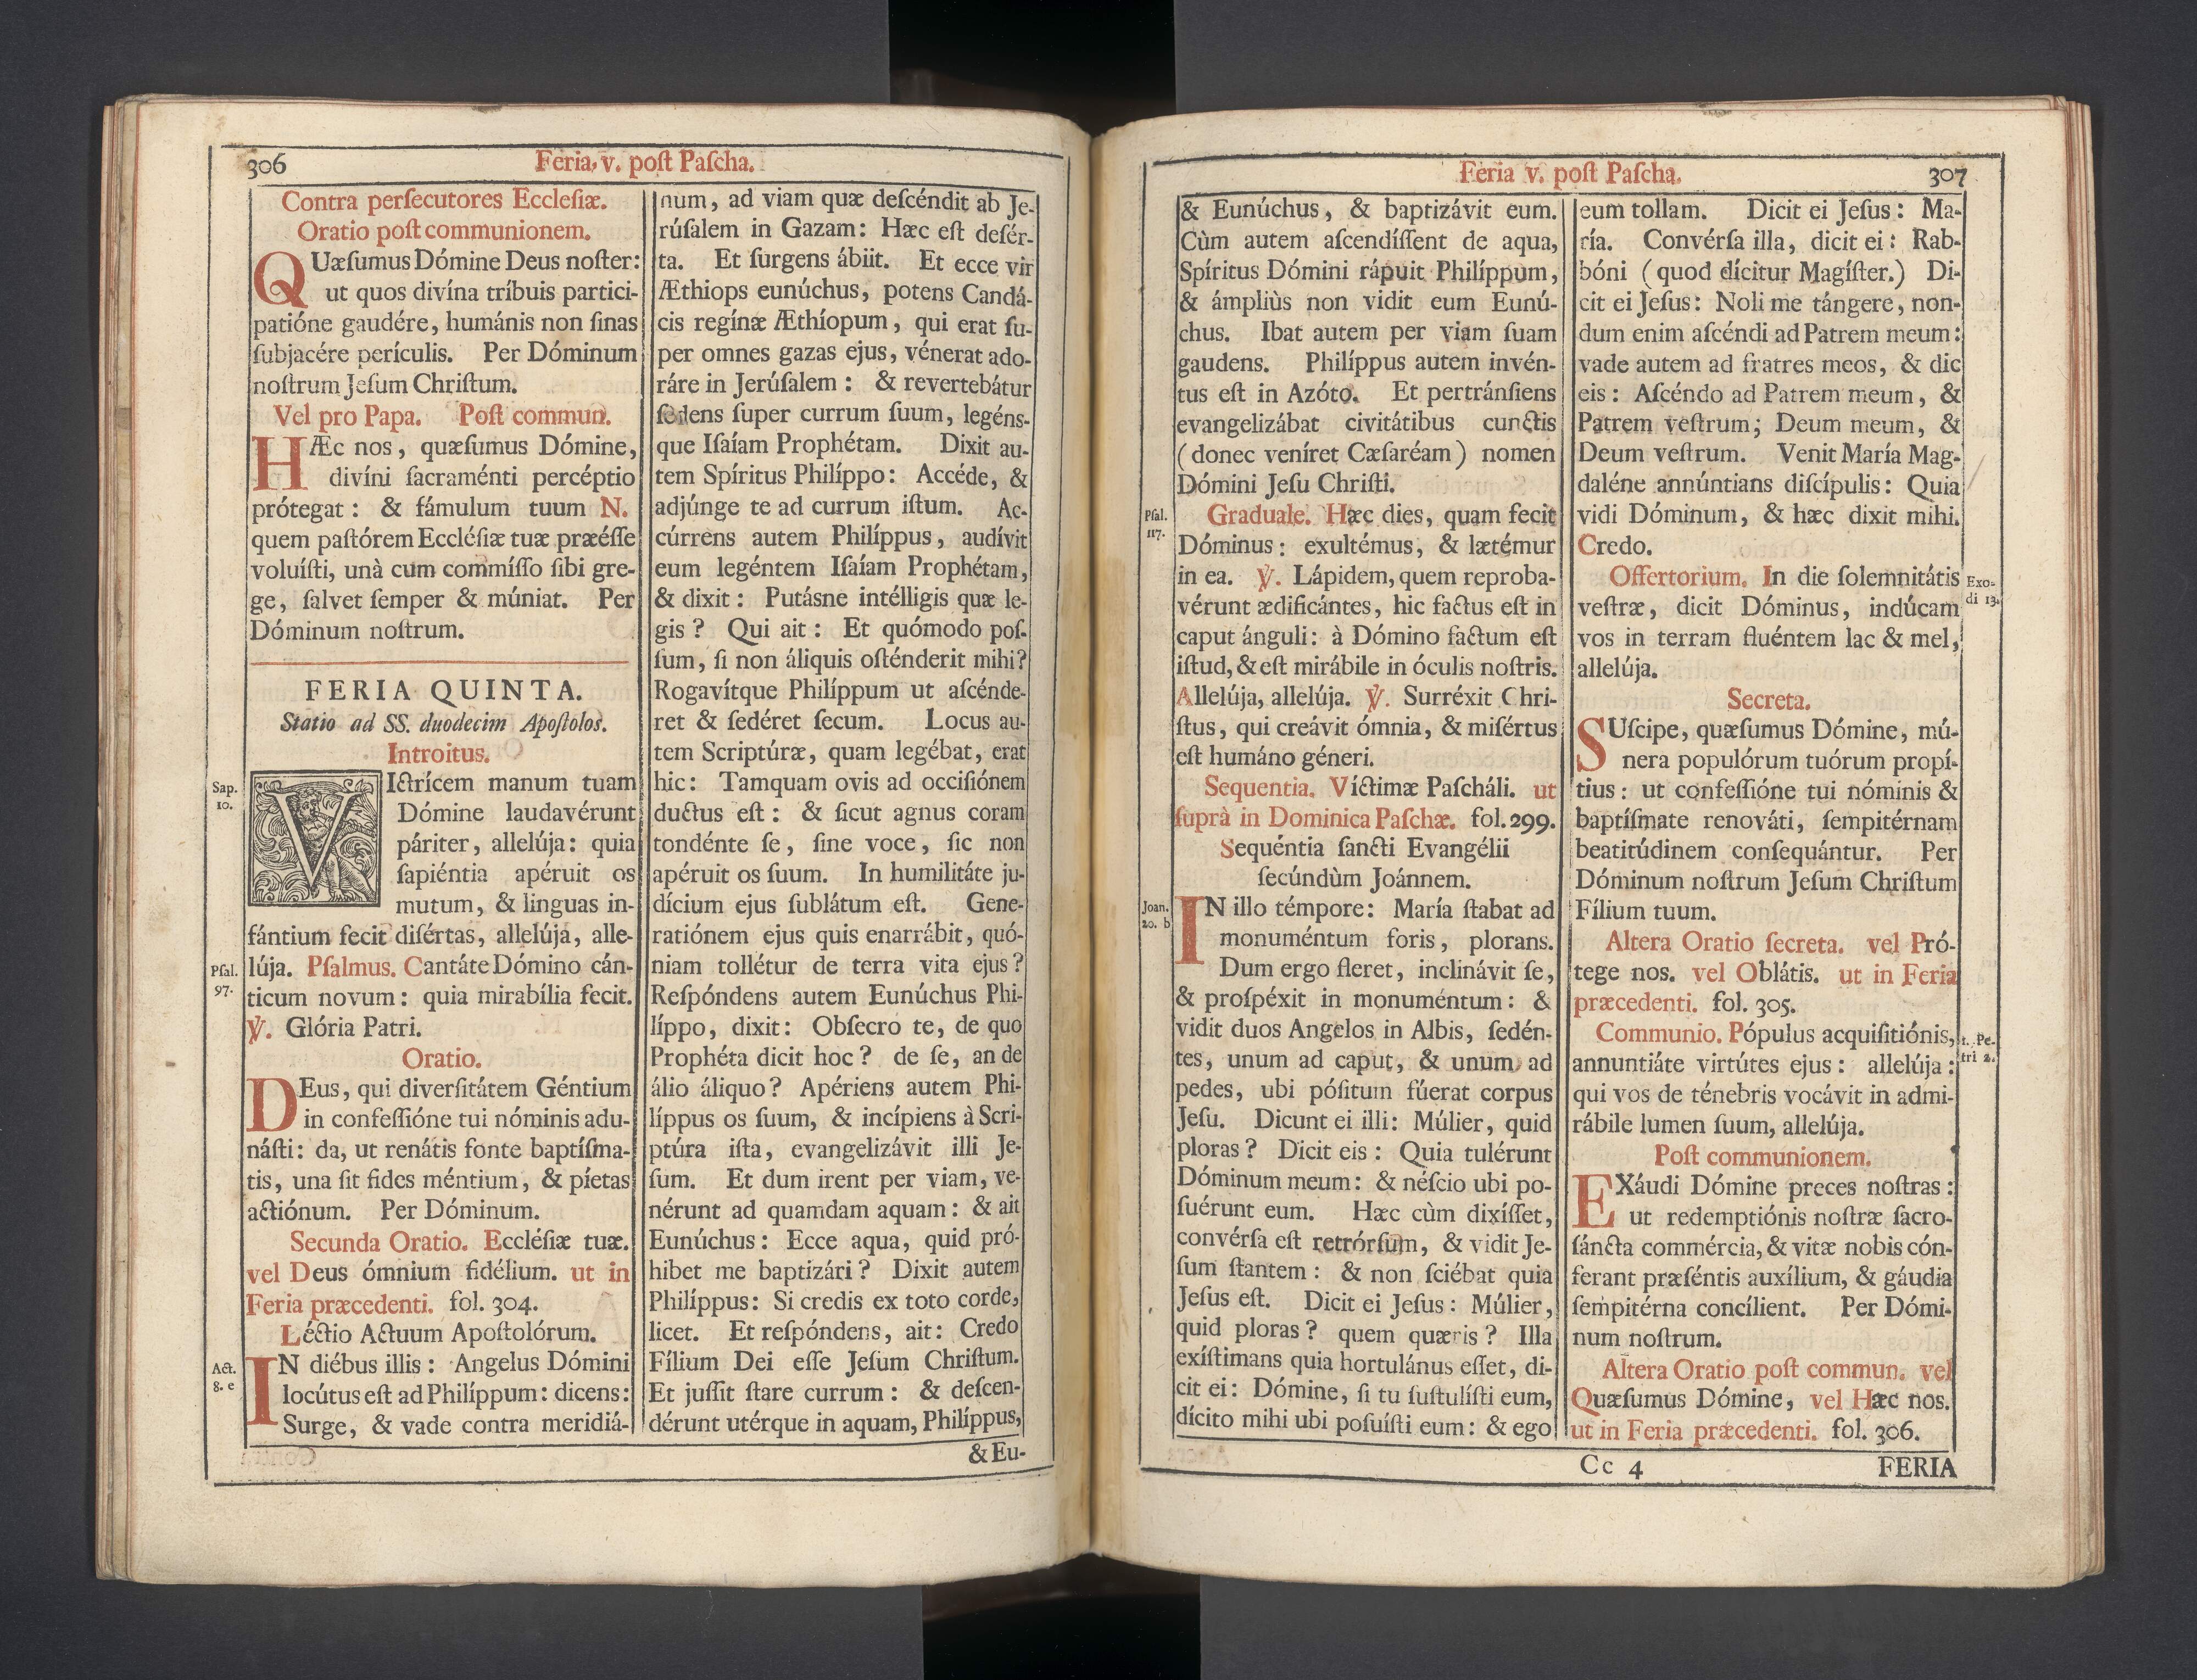 306
Feria, v. poſt Paſcha.
Contra perſecutores Eccleſiæ.
Oratio poſt communionem.
QUæſumus Dómine Deus noſter:
ut quos divína tríbuis partici-
patióne gaudére, humánis non ſinas
ſubjacére perículis. Per Dóminum
noſtrum Jeſum Chriſtum.
Vel pro Papa. Poſt commun.
HÆc nos, quæſumus Dómine,
divíni ſacraménti percéptio
prótegat: & fámulum tuum N.
quem paſtórem Eccléſiæ tuæ præéſſe
voluíſti, unà cum commíſſo ſibi gre-
ge, ſalvet ſemper & múniat. Per
Dóminum noſtrum.
FERIA QUINTA.
Statio ad SS. duodecim Apoſtolos.
Introitus.
Sap.
10.
VIctrícem manum tuam
Dómine laudavérunt
páriter, allelúja: quia
ſapiéntia apéruit os
mutum, & linguas in-
fántium fecit diſértas, allelúja, alle-
Pſal.
97.
lúja. Pſalmus. Cantáte Dómino cán-
ticum novum: quia mirabília fecit.
℣. Glória Patri.
Oratio.
DEus, qui diverſitátem Géntium
in confeſſióne tui nóminis adu-
náſti: da, ut renátis fonte baptíſma-
tis, una ſit fides méntium, & píetas
actiónum. Per Dóminum.
Secunda Oratio. Eccléſiæ tuæ.
vel Deus ómnium fidélium. ut in
Feria præcedenti. fol. 304.
Léctio Actuum Apoſtolórum.
Act.
8. e
IN diébus illis: Angelus Dómini
locútus eſt ad Philíppum: dicens:
Surge, & vade contra meridiá-
num, ad viam quæ deſcéndit ab Je-
rúſalem in Gazam: Hæc eſt deſér-
ta. Et ſurgens ábiit. Et ecce vir
Æthiops eunúchus, potens Candá-
cis regínæ Æthíopum, qui erat ſu-
per omnes gazas ejus, vénerat ado-
ráre in Jerúſalem: & revertebátur
ſedens ſuper currum ſuum, legéns-
que Iſaíam Prophétam. Dixit au-
tem Spíritus Philíppo: Accéde, &
adjúnge te ad currum iſtum. Ac-
cúrrens autem Philíppus, audívit
eum legéntem Iſaíam Prophétam,
& dixit: Putásne intélligis quæ le-
gis? Qui ait: Et quómodo poſ-
ſum, ſi non áliquis oſténderit mihi?
Rogavítque Philíppum ut aſcénde-
ret & ſedéret ſecum. Locus au-
tem Scriptúræ, quam legébat, erat
hic: Tamquam ovis ad occiſiónem
ductus eſt: & ſicut agnus coram
tondénte ſe, ſine voce, ſic non
apéruit os ſuum. In humilitáte ju-
dícium ejus ſublátum eſt. Gene-
ratiónem ejus quis enarrábit, quó-
niam tollétur de terra vita ejus?
Reſpóndens autem Eunúchus Phi-
líppo, dixit: Obſecro te, de quo
Prophéta dicit hoc? de ſe, an de
álio áliquo? Apériens autem Phi-
líppus os ſuum, & incípiens à Scri-
ptúra iſta, evangelizávit illi Je-
ſum. Et dum irent per viam, ve-
nérunt ad quamdam aquam: & ait
Eunúchus: Ecce aqua, quid pró-
hibet me baptizári? Dixit autem
Philíppus: Si credis ex toto corde,
licet. Et reſpóndens, ait: Credo
Fílium Dei eſſe Jeſum Chriſtum.
Et juſſit ſtare currum: & deſcen-
dérunt utérque in aquam, Philíppus,
& Eu-
Feria v. poſt Paſcha.
307
& Eunúchus, & baptizávit eum.
Cùm autem aſcendíſſent de aqua,
Spíritus Dómini rápuit Philíppum,
& ámpliùs non vidit eum Eunú-
chus. Ibat autem per viam ſuam
gaudens. Philíppus autem invén-
tus eſt in Azóto. Et pertránſiens
evangelizábat civitátibus cunctis
(donec veníret Cæſaréam) nomen
Dómini Jeſu Chriſti.
Pſal.
117.
Graduale. Hæc dies, quam fecit
Dóminus: exultémus, & lætémur
in ea. ℣. Lápidem, quem reproba-
vérunt ædificántes, hic factus eſt in
caput ánguli: à Dómino factum eſt
iſtud, & eſt mirábile in óculis noſtris.
Allelúja, allelúja. ℣. Surréxit Chri-
ſtus, qui creávit ómnia, & miſértus
eſt humáno géneri.
Sequentia. Víctimæ Paſcháli. ut
ſuprà in Dominica Paſchæ. fol. 299.
Sequéntia ſancti Evangélii
ſecúndùm Joánnem.
Joan.
20. b
IN illo témpore: María ſtabat ad
monuméntum foris, plorans.
Dum ergo fleret, inclinávit ſe,
& proſpéxit in monuméntum: &
vidit duos Angelos in Albis, ſedén-
tes, unum ad caput, & unum ad
pedes, ubi póſitum fúerat corpus
Jeſu. Dicunt ei illi: Múlier, quid
ploras? Dicit eis: Quia tulérunt
Dóminum meum: & néſcio ubi po-
ſuérunt eum. Hæc cùm dixíſſet,
convérſa eſt retrórſum, & vidit Je-
ſum ſtantem: & non ſciébat quia
Jeſus eſt. Dicit ei Jeſus: Múlier,
quid ploras? quem quæris? Illa
exíſtimans quia hortulánus eſſet, di-
cit ei: Dómine, ſi tu ſuſtulíſti eum,
dícito mihi ubi poſuíſti eum: & ego
eum tollam. Dicit ei Jeſus: Ma-
ría. Convérſa illa, dicit ei: Rab-
bóni (quod dícitur Magíſter.) Di-
cit ei Jeſus: Noli me tángere, non-
dum enim aſcéndi ad Patrem meum:
vade autem ad fratres meos, & dic
eis: Aſcéndo ad Patrem meum, &
Patrem veſtrum; Deum meum, &
Deum veſtrum. Venit María Mag-
daléne annúntians diſcípulis: Quia
vidi Dóminum, & hæc dixit mihi.
Credo.
Offertorium. In die ſolemnitátis
Exo-
di 13.
veſtræ, dicit Dóminus, indúcam
vos in terram fluéntem lac & mel,
allelúja.
Secreta.
SUſcipe, quæſumus Dómine, mú-
nera populórum tuórum propí-
tius: ut confeſſióne tui nóminis &
baptíſmate renováti, ſempitérnam
beatitúdinem conſequántur. Per
Dóminum noſtrum Jeſum Chriſtum
Fílium tuum.
Altera Oratio ſecreta. vel Pró-
tege nos. vel Oblátis. ut in Feria
præcedenti. fol. 305.
Communio. Pópulus acquiſitiónis,
1. Pe-
tri 2.
annuntiáte virtútes ejus: allelúja:
qui vos de ténebris vocávit in admi-
rábile lumen ſuum, allelúja.
Poſt communionem.
EXáudi Dómine preces noſtras:
ut redemptiónis noſtræ ſacro-
ſáncta commércia, & vitæ nobis cón-
ferant præſéntis auxílium, & gáudia
ſempitérna concílient. Per Dómi-
num noſtrum.
Altera Oratio poſt commun. vel
Quæſumus Dómine, vel Hæc nos.
ut in Feria præcedenti. fol. 306.
Cc 4
FERIA